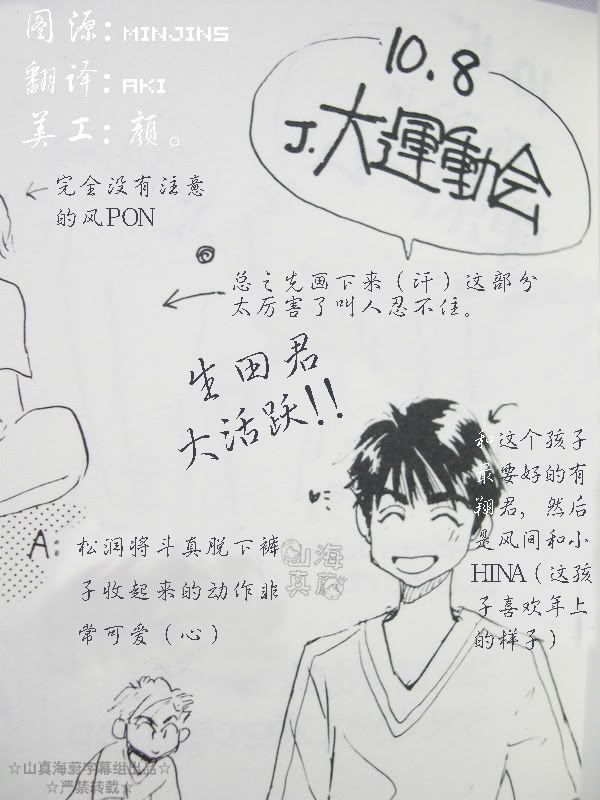 图源:MINJINS
翻译:AKI
美工:颜。
10.8
J.大運動会
完全没有注意
的风PON
总之先画下来（汗）这部分
太厉害了叫人忍不住。
生田君
大活跃!!
和这个孩子
最要好的有
翔君，然后
是风间和小
HINA（这孩
子喜欢年上
的样子）
A:
松润将斗真脱下裤
子收起来的动作非
常可爱（心）
山海
真蔚
☆山真海蔚字幕组出品☆
☆严禁转载☆